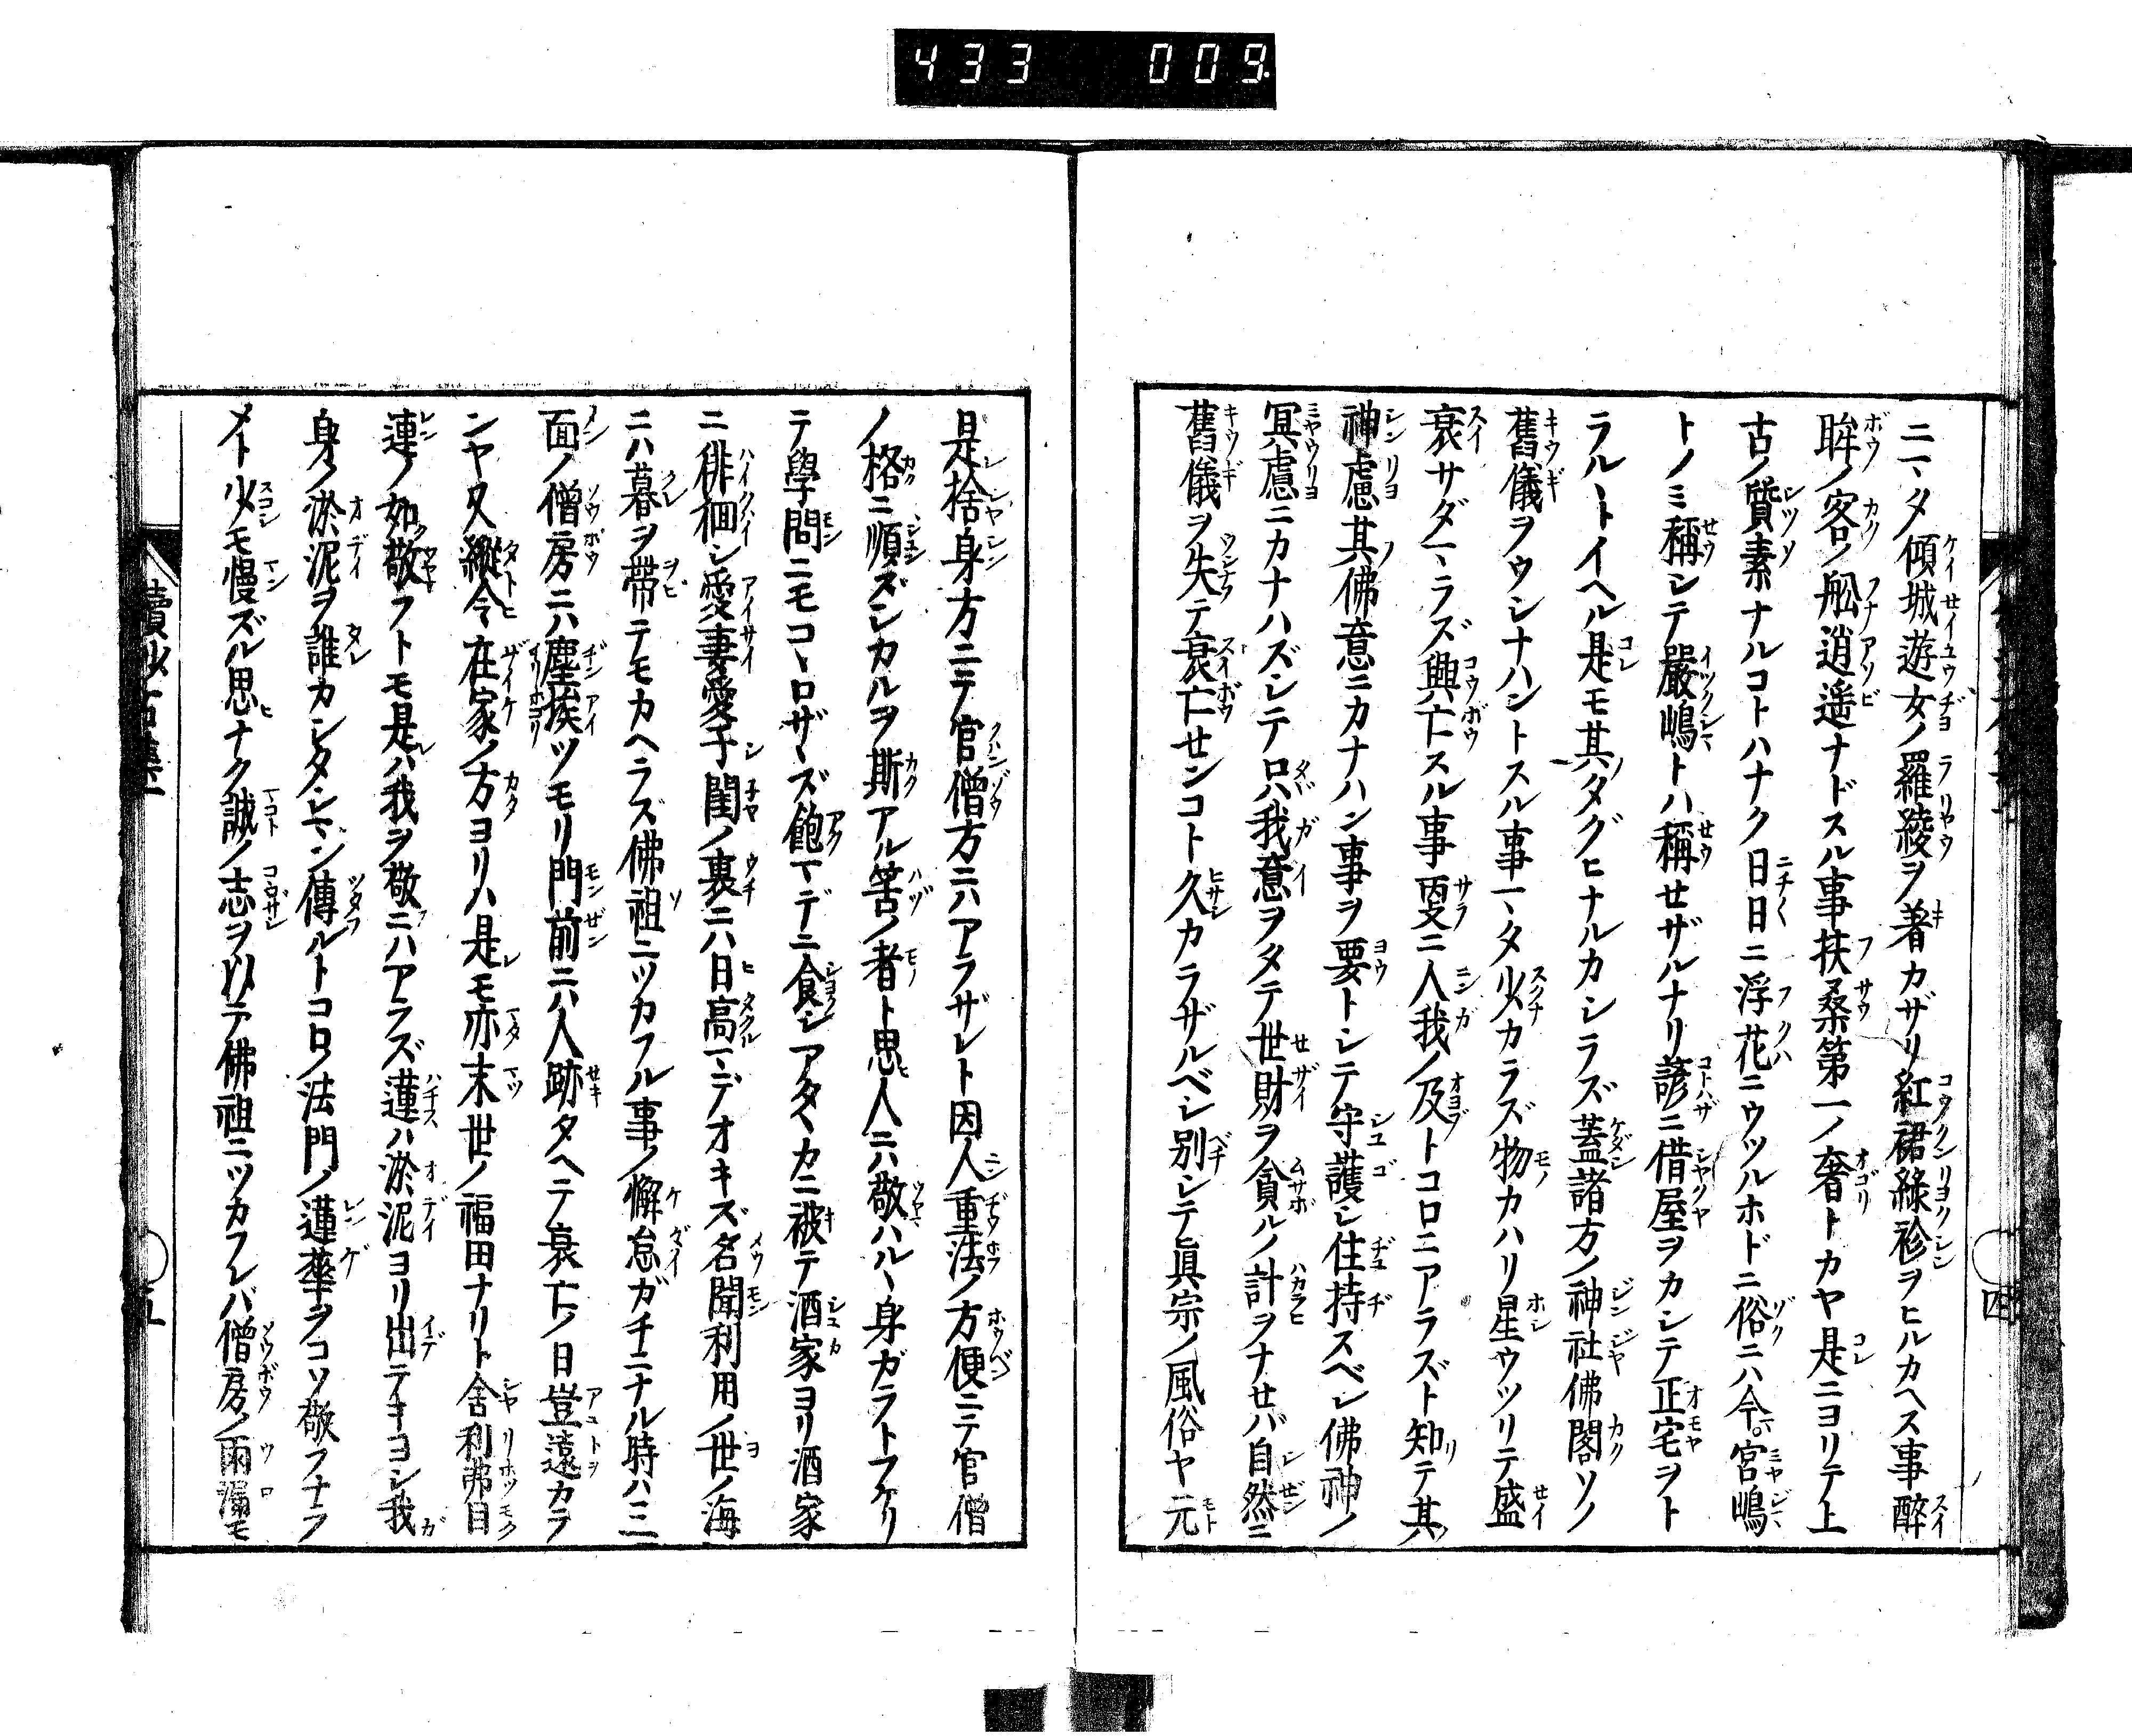 433 009.
ニマタ傾城遊女ノ羅綾ヲ著カザリ紅裙緑袗ヲヒルカヘス事醉
眸ノ客ノ舩逍遥ナドスル事扶桑第一ノ奢トカヤ是ニヨリテ上
古ノ質素ナルコトハナク日日ニ浮花ニウツルホドニ俗ニハ今宮嶋
トノミ稱シテ嚴嶋トハ稱セザルナリ諺ニ借屋ヲカシテ正宅ヲト
ラルトイヘル是モ其タグヒナルカシラズ蓋諸方ノ神社佛閣ソノ
舊儀ヲウシナハントスル事マタ少カラズ物カハリ星ウツリテ盛
衰サダマラズ興亡スル事更ニ人我ノ及トコロニアラズト知テ其
神慮其佛意ニカナハン事ヲ要トシテ守護シ住持スベシ佛神ノ
冥慮ニカナハズシテ只我意ヲタテ世財ヲ貪ルノ計ヲナセバ自然ニ
舊儀ヲ失テ衰亡センコト久カラザルベシ別シテ眞宗ノ風俗ヤ元
四
是捨身方ニテ官僧方ニハアラザレト因人重法ノ方便ニテ官僧
ノ格ニ順ズシカルヲ斯アル筈ノ者ト思人ニハ敬ハルヽ身ガラトフケリ
テ學問ニモコヽロザヽズ飽マデニ食シアタヽカニ被テ酒家ヨリ酒家
ニ徘徊シ愛妻愛子閨ノ裏ニハ日高マデオキズ名聞利用ノ世ノ海
ニハ暮ヲ帶テモカヘラズ佛祖ニツカフル事ノ懈怠ガチニナル時ハ三
面ノ僧房ニハ塵埃ツモリ門前ニハ人跡タヘテ衰亡ノ日豈遠カラ
ンヤ又縱令在家ノ方ヨリハ是モ亦末世ノ福田ナリト舍利弗目
連ノ如敬フトモ是ハ我ヲ敬ニハアラズ蓮ハ淤泥ヨリ出テキヨシ我
身ノ淤泥ヲ誰カシタシマン傳ルトコロノ法門ノ蓮華ヲコソ敬フナラ
メト少モ慢ズル思ナク誠ノ志ヲ以テ佛祖ニツカフレバ僧房ノ雨漏モ
五